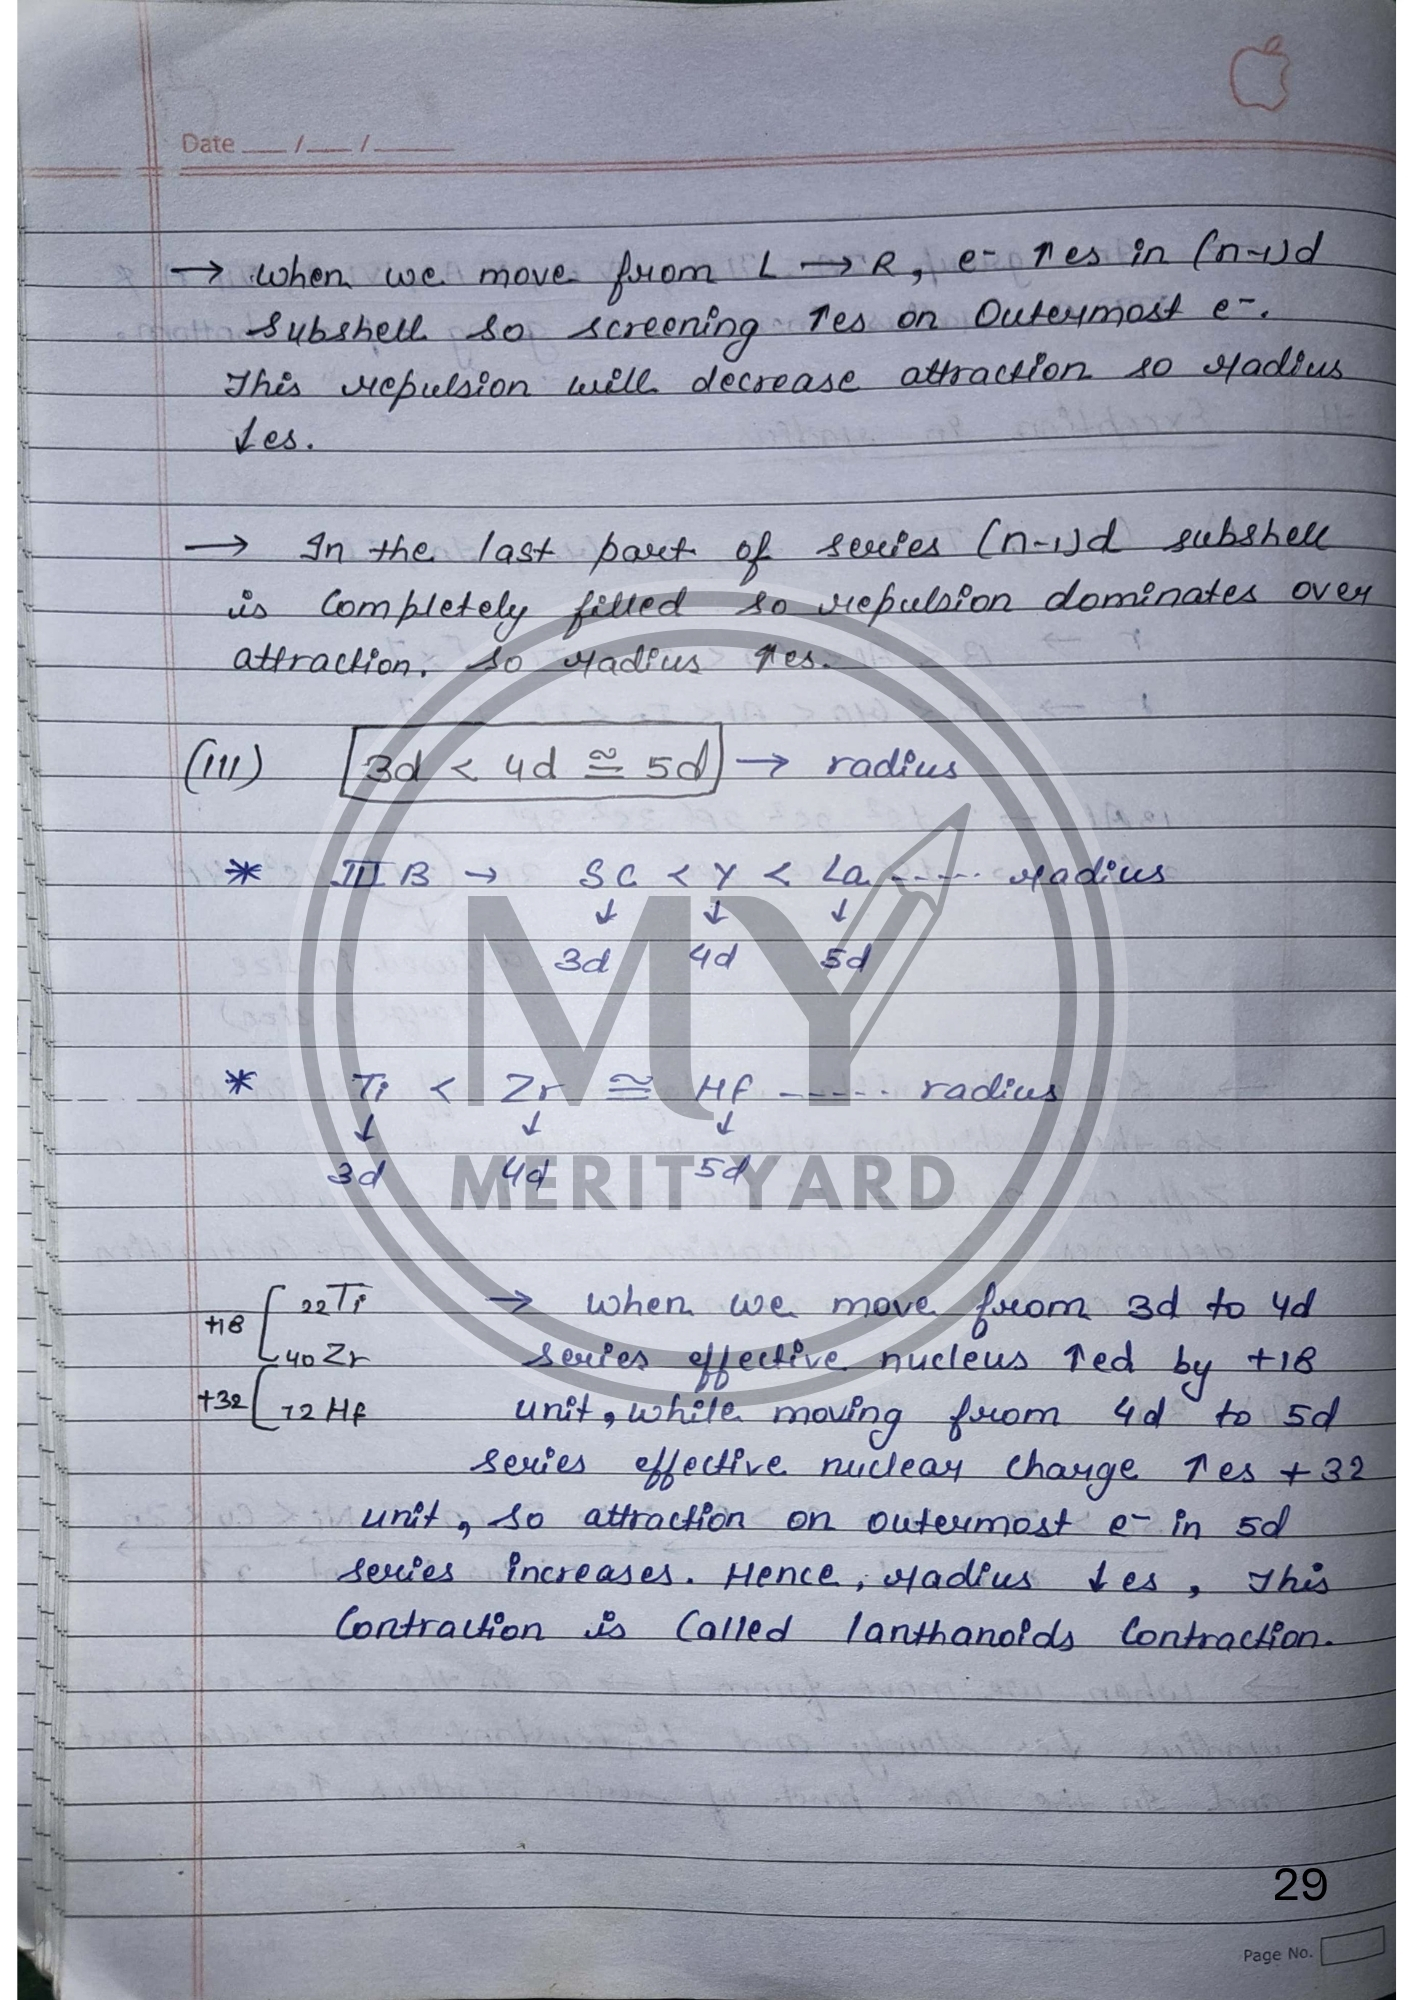 Date ___ / ___ / _____
→ when we move from L → R, e⁻ ↑es in (n-1)d
subshell so screening ↑es on outermost e⁻.
This repulsion will decrease attraction so radius
↓es.
→ In the last part of series (n-1)d subshell
is completely filled so repulsion dominates over
attraction. so radius ↑es.
(III) 3d < 4d ≅ 5d → radius
* III B → SC < Y < La ...... radius
↓ ↓ ↓
3d 4d 5d
* Ti < Zr ≅ Hf ------ radius
↓ ↓ ↓
3d 4d 5d
MY
MERIT YARD
+18 +32
₂₂Ti
₄₀Zr
₇₂Hf
→ when we move from 3d to 4d
series effective nucleus ↑ed by +18
unit, while moving from 4d to 5d
series effective nuclear charge ↑es +32
unit, so attraction on outermost e⁻ in 5d
series increases. Hence, radius ↓es, This
Contraction is Called lanthanoids Contraction.
29
Page No.